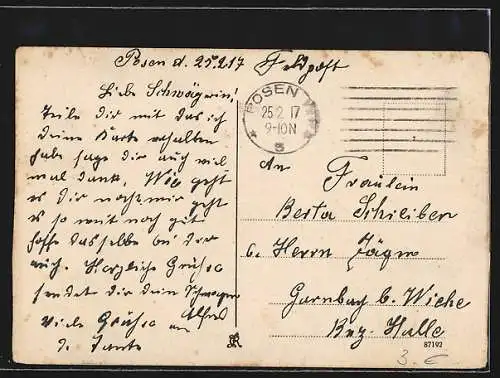 Posen d. 25.2.17
Feldpost
Liebe Schwägerin!
Teile dir mit das ich
deine Karte erhalten
habe sage dir auch viel
mal dank. Wie geht
es dir noch mir geht
es so weit noch gut
hoffe dasselbe bei dir
auch. Herzliche Grüße
sendet dir dein Schwager
Alfred
viele Grüße an
d. Tante
POSEN
25.2.17
9-10N
* 5 *
An
Fräulein
Berta Schreiber
b. Herrn Jäger
Garnbach b. Wiehe
Bez. Halle
87192
3.-€